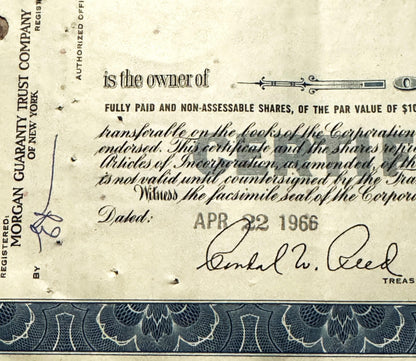 is the owner of
FULLY PAID AND NON-ASSESSABLE SHARES, OF THE PAR VALUE OF $10
transferable on the books of the Corporation
endorsed. This certificate and the shares repre
Articles of Incorporation, as amended, of th
is not valid until countersigned by the Tra
Witness the facsimile seal of the Corpor
Dated: APR 22 1966
W. Reed
TREAS
REGISTERED:
MORGAN GUARANTY TRUST COMPANY
OF NEW YORK
BY
AUTHORIZED OFFI
REGIST